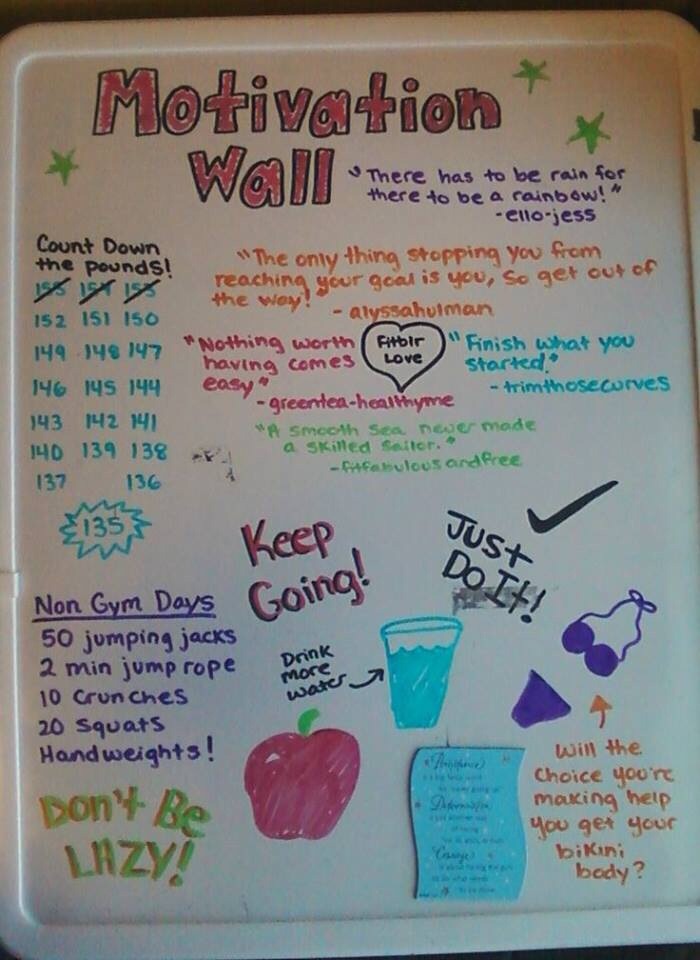 Motivation
Wall
"There has to be rain for
there to be a rainbow!"
-ello-jess
Count Down
the pounds!
155 154 153
152 151 150
149 148 147
146 145 144
143 142 141
140 139 138
137 136
135
"The only thing stopping you from
reaching your goal is you, so get out of
the way!"
- alyssahulman
"Nothing worth
having comes
easy"
- greentea-healthyme
Fitblr
Love
"Finish what you
started."
- trimthosecurves
"A smooth sea never made
a skilled sailor."
-fitfabulousandfree
Keep
Going!
Just
Do It!
Non Gym Days
50 jumping jacks
2 min jump rope
10 crunches
20 squats
Handweights!
Don't Be
LAZY!
Drink
more
water
Will the
choice you're
making help
you get your
bikini
body?
Determination
Courage